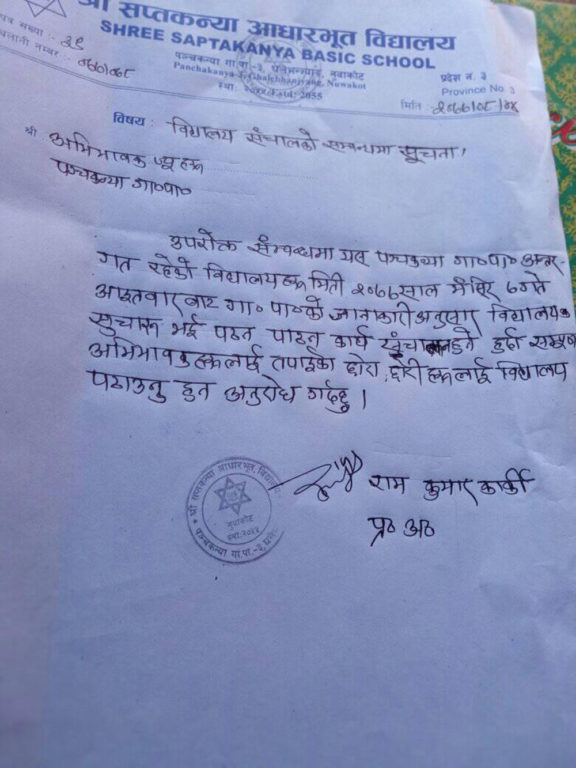 श्री सप्तकन्या आधारभूत विद्यालय
SHREE SAPTAKANYA BASIC SCHOOL
पञ्चकन्या गा.पा.-३, नुवाकोट
Panchakanya Nuwakot
Estd. 2055
प्रदेश नं. ३
Province No 3
पत्र संख्या :
चलानी नम्बर :
मिति २०७७/०८/
विषय : विद्यालय संचालको सम्बन्धमा सूचना।
श्री अभिभावक ज्यू हरू
पञ्चकन्या गा०पा०
उपरोक्त सम्बन्धमा यस पञ्चकन्या गा०पा० अन्तर-
गत रहेको विद्यालयहरू मिती २०७७साल मंसिर ७गते
आइतवार बाट गा० पा०को जानकारी अनुसार विद्यालय
सुचारू भई पठन पाठन कार्य हुने हुदाँ सम्पूर्ण
अभिभावकहरूलाई तपाईको छोरा, छोरीहरूलाई विद्यालय
पठाउनु हुन अनुरोध गर्दछु।
राम कुमार कार्की
प्र० अ०
श्री सप्तकन्या आधारभूत विद्यालय
नुवाकोट
पञ्चकन्या गा.पा.-३,